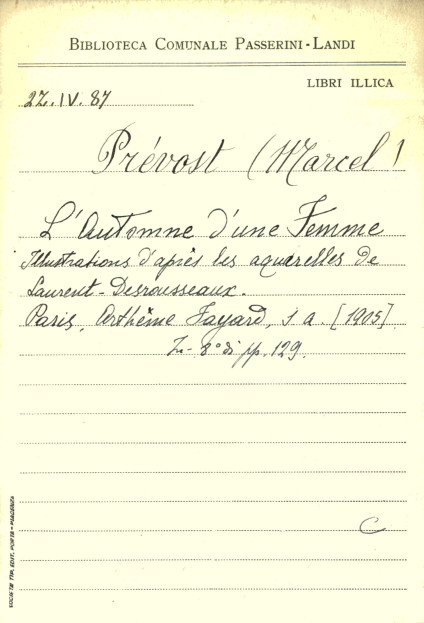 BIBLIOTECA COMUNALE PASSERINI-LANDI
LIBRI ILLICA
2Z.IV.87
Prévost (Marcel)
L'Automne d'une Femme
Illustrations d'après les aquarelles de
Laurent-Desrousseaux.
Paris, Arthême Fayard, s a. [1905]
In-8° di pp. 129.
C
SOCIETÀ TIP. EDIT. PORTA - PIACENZA